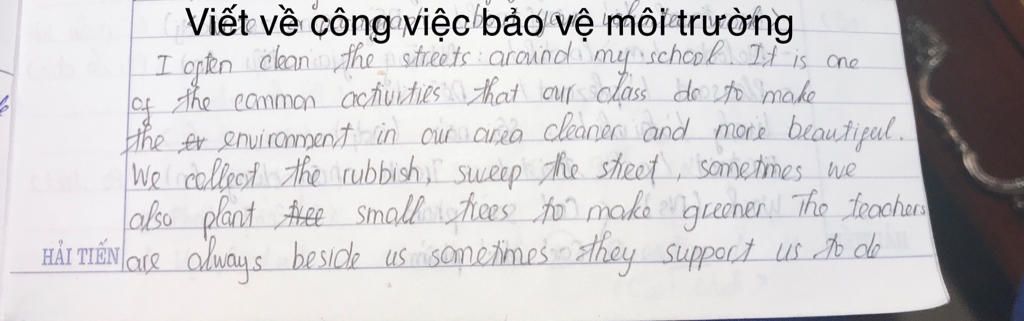 Viết về công việc bảo vệ môi trường
I often clean the streets around my school It is one
of the common activities that our class do to make
the er environment in our area cleaner and more beautiful.
We collect the rubbish, sweep the street, sometimes we
also plant tree small trees to make greener. The teachers
HẢI TIẾN are always beside us sometimes they support us to do